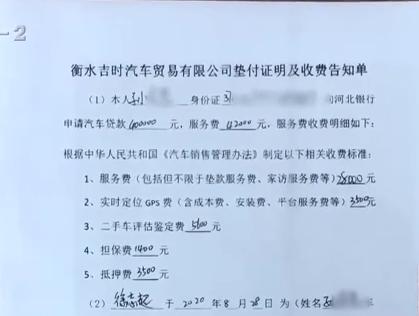 -2
衡水吉时汽车贸易有限公司垫付证明及收费告知单
(1)本人 身份证 河北银行
申请汽车贷款400000元，服务费42000元，服务费收费明细如下：
根据中华人民共和国《汽车销售管理办法》制定以下相关收费标准：
1、服务费（包括但不限于垫款服务费、家访服务费等）28000元
2、实时定位GPS费（含成本费、安装费、平台服务费等）3500元
3、二手车评估鉴定费5600元
4、担保费1400元
5、抵押费3500元
(2) 于2020年8月28日 为（姓名